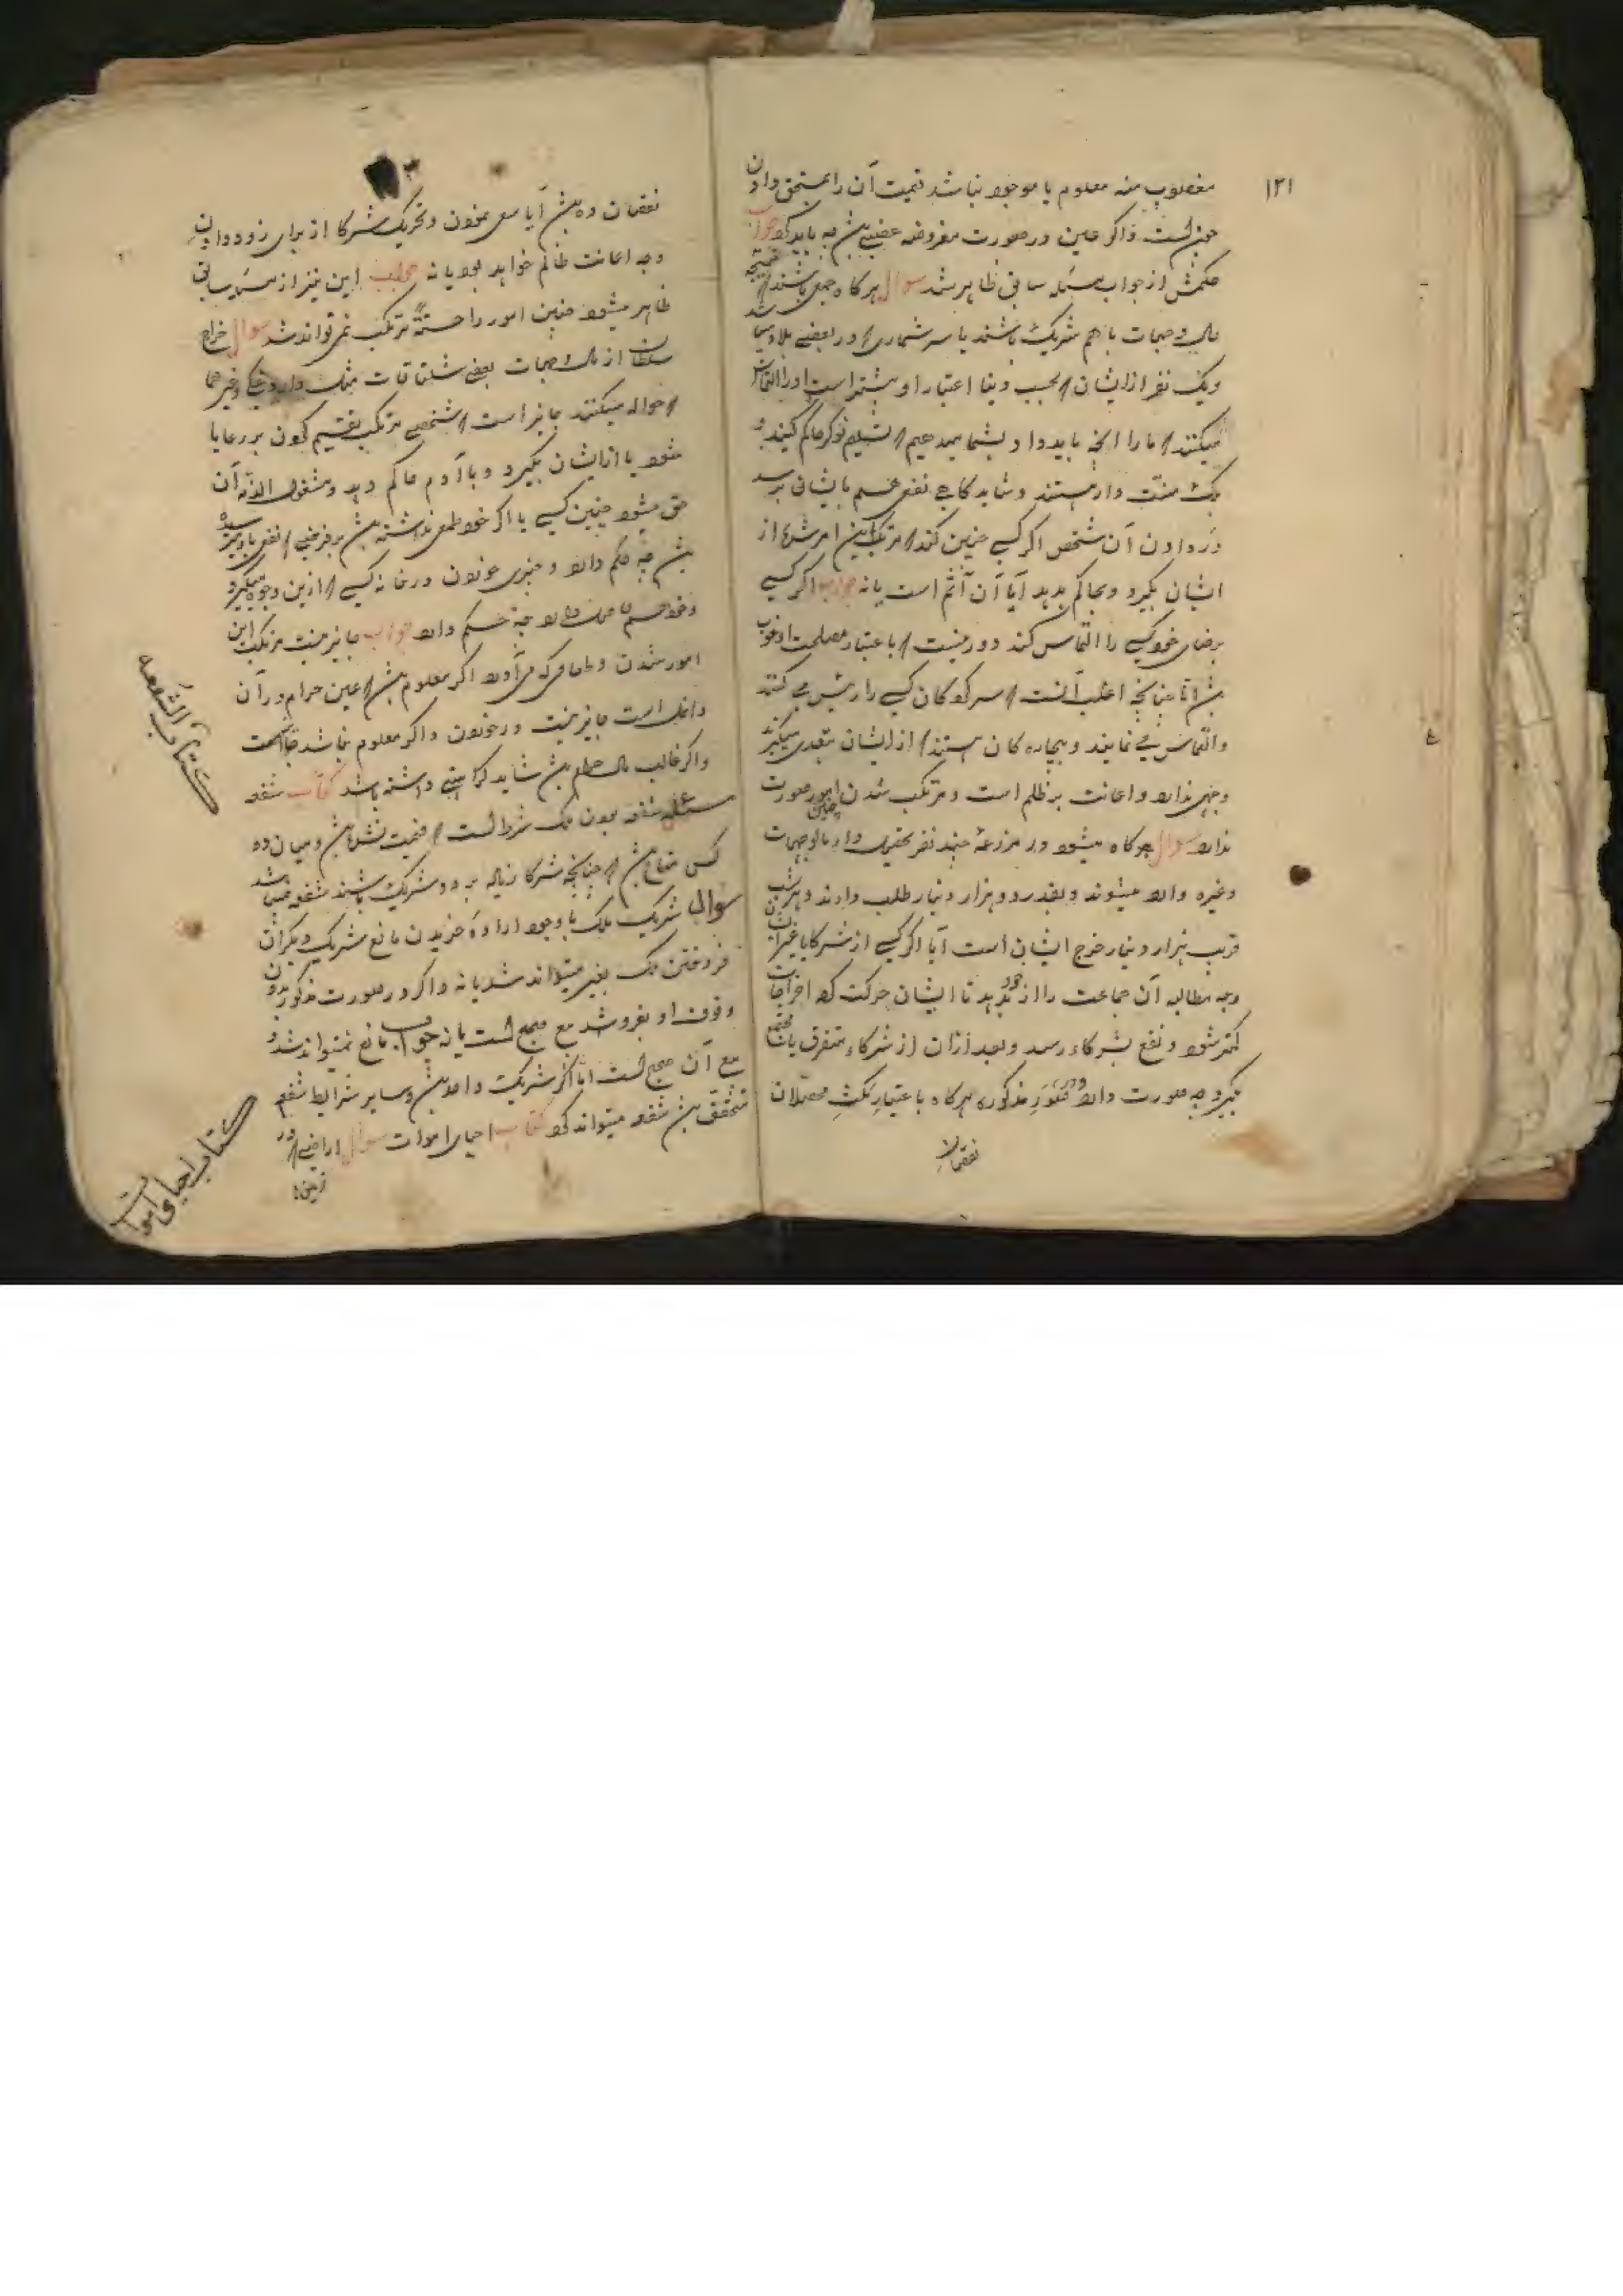 ۱۲۱
مغصوب منه معلوم یا موجود نباشد قیمت آن را بمستحق دادن
چونست و اگر عین در صورت مفروضه عصبی باشد چه باید کرد جواب
حکمش از جواب مسئله سابق ظاهر شد سوال هرگاه جمعی باشند که
مال و جهات با هم شریک باشند یا سرشماری که در بعضی بلاد میباشد
و یک نفر از ایشان که بحسب دنیا اعتبار او بیشتر است او را التماس
میکنند که ما را آنچه باید داد بشما میدهیم که تسلیم نوکر حاکم کنید و
منت دار هستند و شاید گاهی نفعی هم بایشان برسد
در دادن آن شخص اگر کسی چنین کند که مرتکب این امر شود که از
ایشان بگیرد و بحاکم بدهد آیا آن آثم است یا نه جواب اگر کسی
برضای خود کسی را التماس کند دور نیست که باعتبار مصلحت او خوب
باشد اما چنانچه اغلب آنست که سرکردگان کسی را رئیس می کنند
و التماس می نمایند و بیچارگان هستند که از ایشان بتعدی میگیرند
وجهی ندارد و اعانت بر ظلم است و مرتکب شدن چنین امور صورت
ندارد سوال هرگاه میشود در مزرعه چند نفر بتحویل دار مالوجهات
و غیره وارد میشوند و بقدر دو هزار دینار طلب دارند و هر شب
قریب هزار دینار خرج ایشان است آیا اگر کسی از شرکا یا غیر آن
وجه مطالبه آن جماعت را از خود بدهد تا ایشان حرکت کرده اخراجات
کمتر شود و نفع بشرکاء رسد و بعد از آن از شرکاء متفرق یا مجتمع
بگیرد چه صورت دارد و در صور مذکوره هرگاه باعتبار مکث محصلان
نقصان
۳
نقصان ده باشد آیا سعی نمودن و تحریک شرکا از برای زود دادن
وجه اعانت ظالم خواهد بود یا نه جواب این نیز از مسئله سابق
ظاهر میشود چنین امور را حسبة مرتکب نمی تواند شد سوال خراج
سلطان از مال و جهات بعضی شلتاقات مثل داروغگی و غیرها
که حواله میکنند جایز است که شخصی مرتکب تقسیم کردن بر رعایا
شود یا از ایشان بگیرد و با آدم حاکم دهد و مشغول الذمه آن
حق میشود چنین کسی یا اگر خود طمعی نداشته باشد بر فرضی که نفعی باو میرسیده
باشد چه حکم دارد و چیزی خوردن در خانه کسی که ازین وجوه میگیرد
چه حکم دارد جواب جایز نیست مرتکب این
امور شدن و طعامی که می آورد اگر معلوم باشد که عین حرام در آن
داخل است جایز نیست در خوردن و اگر معلوم نباشد جایز است
و اگر غالب مال حرام باشد شاید کراهتی داشته باشد کتاب شفعه
شفعه بودن ملک شرط است که قیمت نشده باشد و میان دو
کس مشاع باشد که چنانچه شرکا زیاده بر دو شریک باشند شفعه نمیباشد
سوال شریک ملک با وجود اراده خریدن مانع شریک دیگر از
فروختن ملک بغیر میتواند شد یا نه و اگر در صورت مذکور بدون
وقوف او بفروشد بیع صحیح است یا نه جواب مانع نمیتواند شد و
بیع آن صحیح است اما اگر شریک واحد باشد و سایر شرایط شفعه
متحقق باشد شفعه میتواند کرد کتاب احیای اموات سوال اراضی که در
زمین
کتاب الشفعه
کتاب احیای اموات